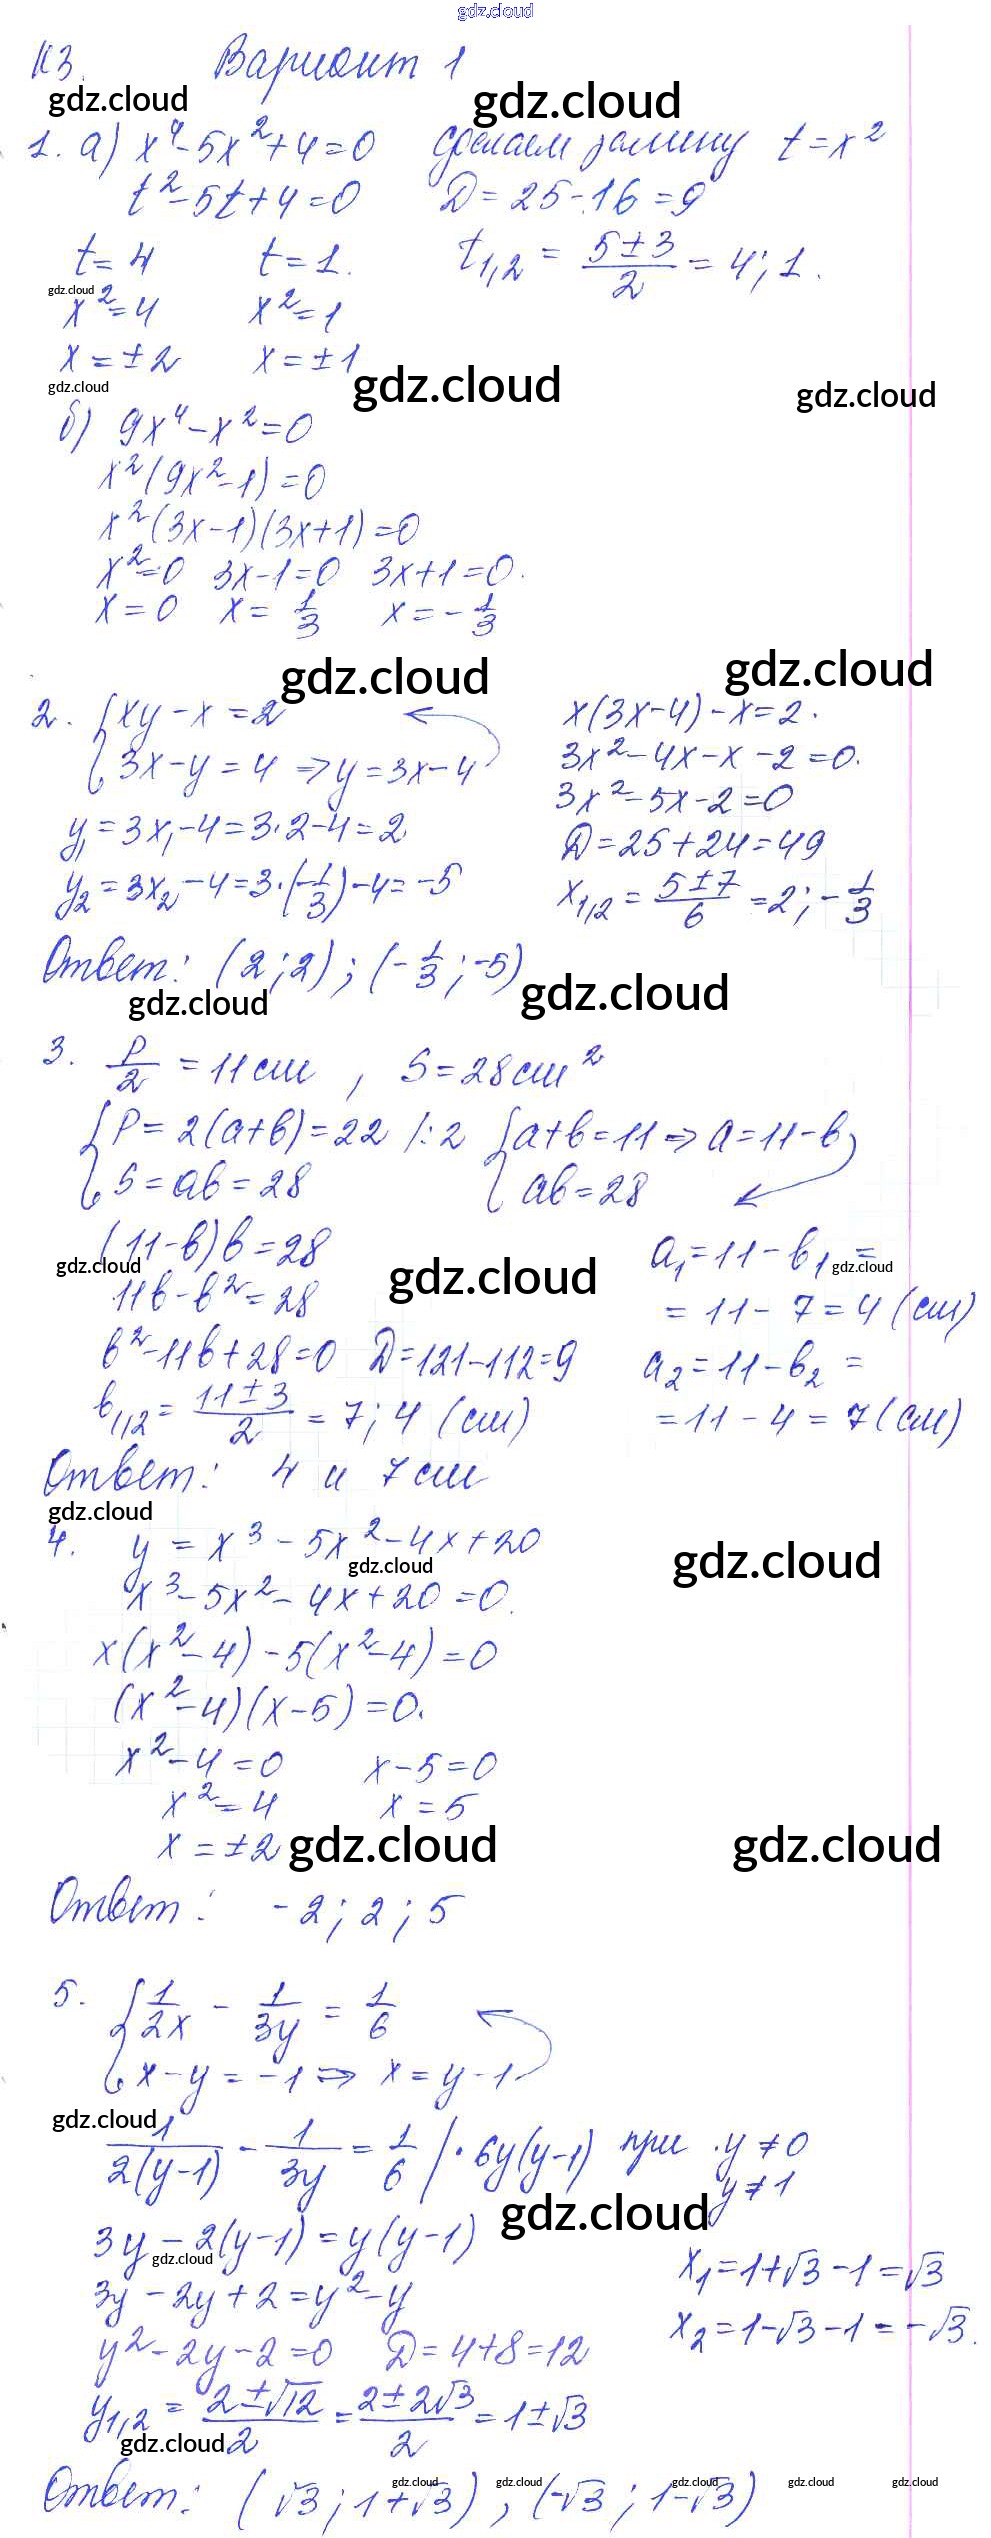 gdz.cloud
К3. Вариант 1
gdz.cloud gdz.cloud
1. а) x⁴-5x²+4=0 сделаем замену t=x²
t²-5t+4=0 D=25-16=9
t=4 t=1. t₁,₂ = (5±3)/2 = 4; 1.
gdz.cloud
x²=4 x²=1
x=±2 x=±1
gdz.cloud gdz.cloud gdz.cloud
б) 9x⁴-x²=0
x²(9x²-1)=0
x²(3x-1)(3x+1)=0
x²=0 3x-1=0 3x+1=0.
x=0 x=1/3 x=-1/3
gdz.cloud gdz.cloud
2. { xy-x=2 x(3x-4)-x=2.
3x-y=4 ⇒ y=3x-4 3x²-4x-x-2=0.
3x²-5x-2=0
y₁=3x₁-4=3·2-4=2 D=25+24=49
y₂=3x₂-4=3·(-1/3)-4=-5 x₁,₂=(5±7)/6=2; -1/3
Ответ: (2; 2); (-1/3; -5)
gdz.cloud gdz.cloud
3. P/2 = 11 см, S=28 см²
{ P=2(a+b)=22 /:2 { a+b=11 ⇒ a=11-b
S=ab=28 ab=28
(11-b)b=28 a₁=11-b₁=
gdz.cloud gdz.cloud gdz.cloud
11b-b²=28 =11-7=4 (см)
b²-11b+28=0 D=121-112=9 a₂=11-b₂=
b₁,₂=(11±3)/2=7; 4 (см) =11-4=7 (см)
Ответ: 4 и 7 см
gdz.cloud
4. y=x³-5x²-4x+20
gdz.cloud gdz.cloud
x³-5x²-4x+20=0.
x(x²-4)-5(x²-4)=0
(x²-4)(x-5)=0.
x²-4=0 x-5=0
x²=4 x=5
x=±2
gdz.cloud gdz.cloud
Ответ: -2; 2; 5
5. { 1/2x - 1/3y = 1/6
x-y=-1 ⇒ x=y-1
gdz.cloud
1/2(y-1) - 1/3y = 1/6 /·6y(y-1) при y≠0
y≠1
gdz.cloud
3y-2(y-1)=y(y-1)
gdz.cloud
x₁=1+√3-1=√3
3y-2y+2=y²-y
x₂=1-√3-1=-√3.
y²-2y-2=0 D=4+8=12
y₁,₂=(2±√12)/2=(2±2√3)/2=1±√3
gdz.cloud
Ответ: (√3; 1+√3), (-√3; 1-√3)
gdz.cloud gdz.cloud gdz.cloud gdz.cloud gdz.cloud